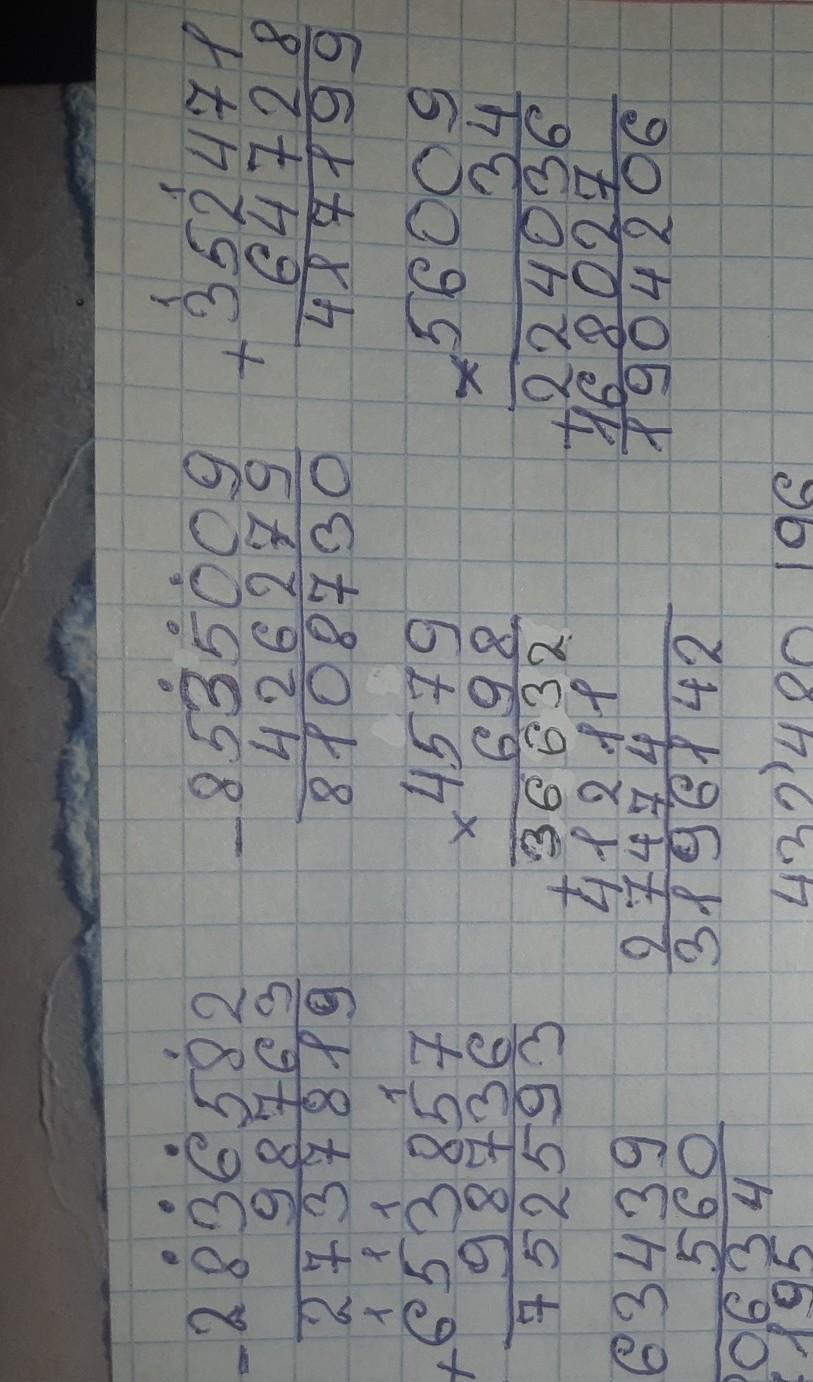 -2836582
98763
2737819
-8535009
426279
8108730
+352471
64728
417199
+653857
98736
752593
×4579
698
36632
+41211
27474
3196142
×56009
34
224036
+168027
1904206
63439
560
0634
195
432'480 196